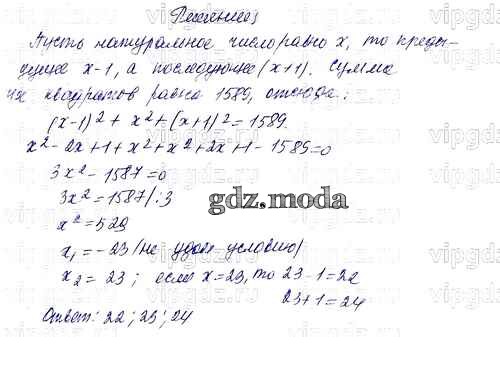 Решение:
Пусть натуральное число равно x, то преды-
дущее x-1, а последующее (x+1). Сумма
их квадратов равна 1589, отсюда:
(x-1)² + x² + (x+1)² = 1589.
x² - 2x + 1 + x² + x² + 2x + 1 - 1589 = 0
3x² - 1587 = 0
3x² = 1587 / : 3
gdz.moda
x² = 529
x₁ = - 23 /не удов. условию/
x₂ = 23 ; если x = 23, то 23 - 1 = 22
23 + 1 = 24
Ответ: 22 ; 23 ; 24